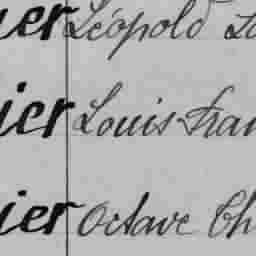 ier Léopold
ier Louis Fran
ier Octave Ch